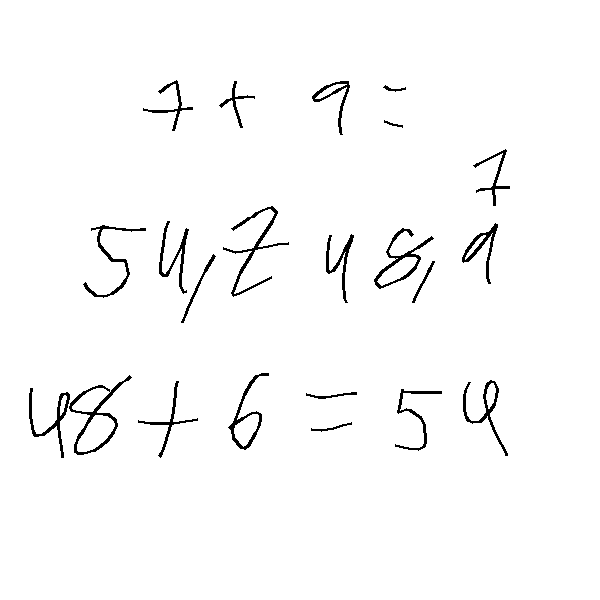 7 + 9 =
7
54,Z 48,9
48 + 6 = 54